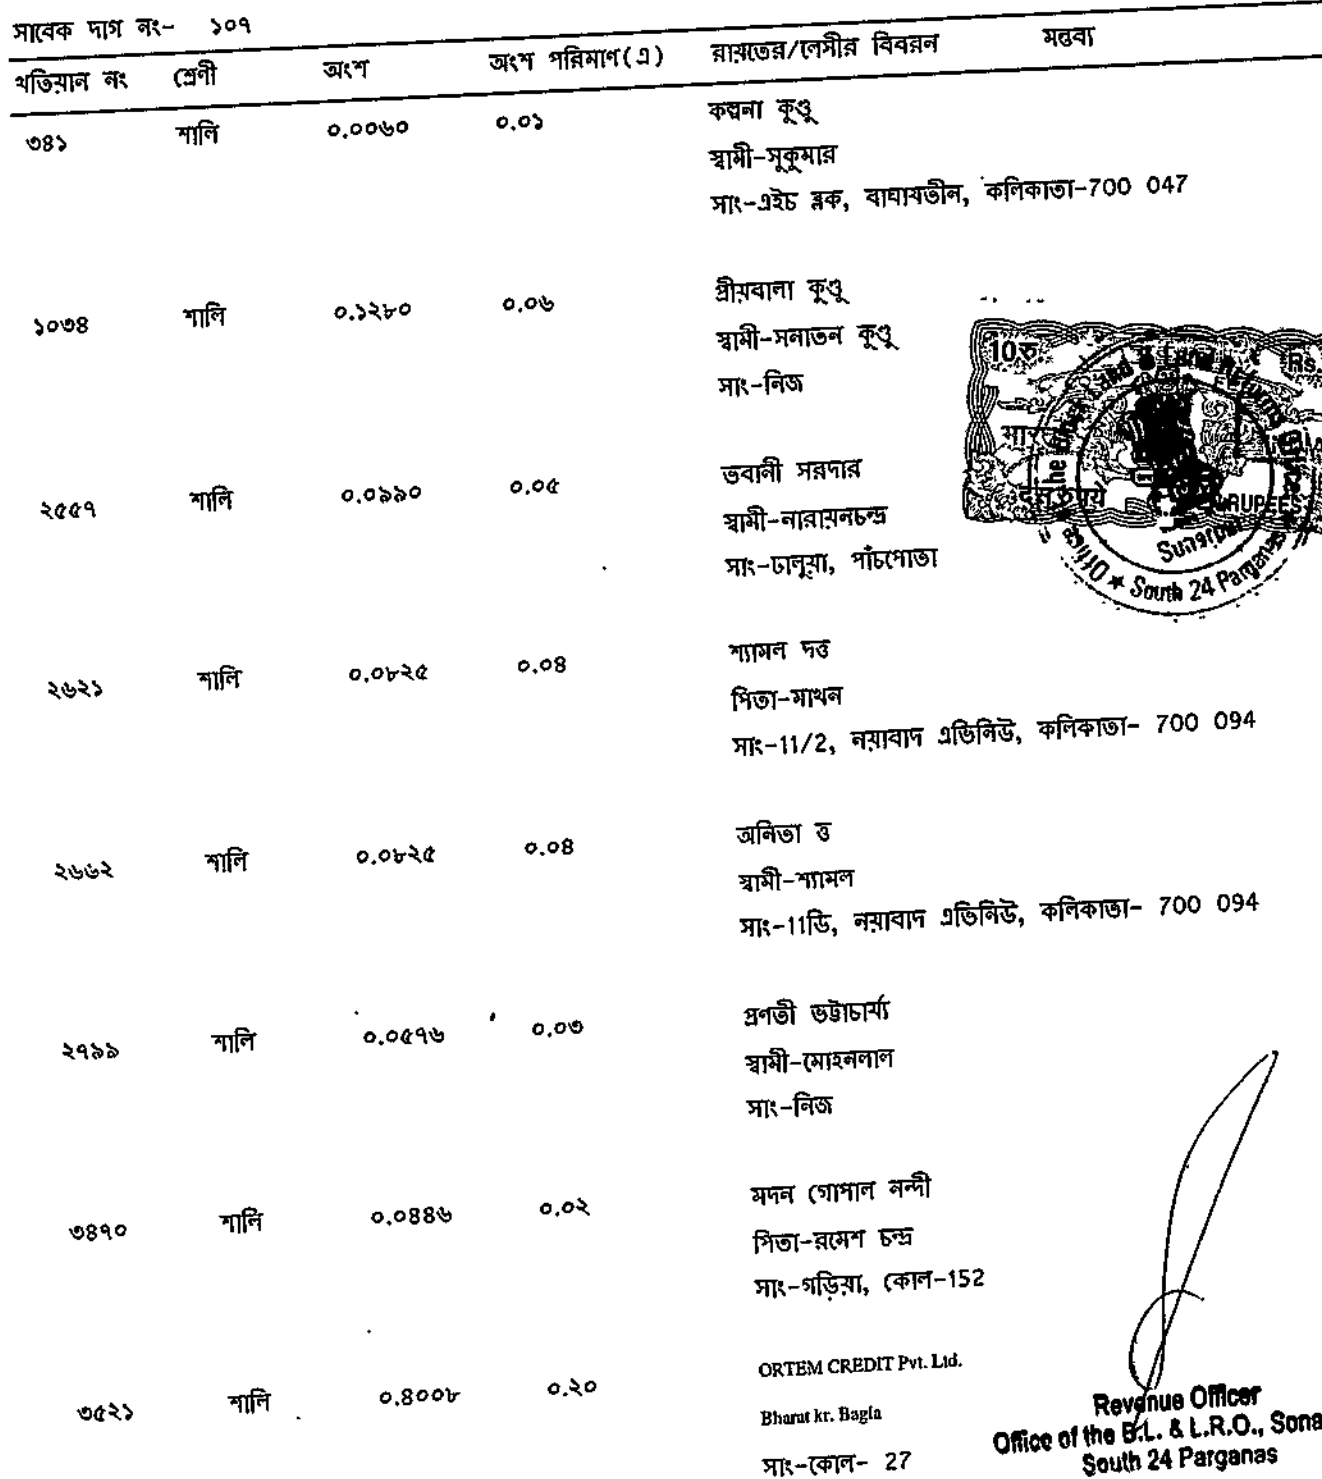 সাবেক দাগ নং- ১০৭
খতিয়ান নং শ্রেণী অংশ অংশ পরিমাণ(এ) রায়তের/লেসীর বিবরন মন্তব্য
৩৪১ শালি ০.০০৬০ ০.০১ কল্পনা কুণ্ডু
স্বামী-সুকুমার
সাং-এইচ ব্লক, বাঘাযতীন, কলিকাতা-700 047
১০৩৪ শালি ০.১২৮০ ০.০৬ প্রীয়বালা কুণ্ডু
স্বামী-সনাতন কুণ্ডু
সাং-নিজ
২৫৫৭ শালি ০.০৯৯০ ০.০৫ ভবানী সরদার
স্বামী-নারায়নচন্দ্র
সাং-ঢালুয়া, পাঁচপোতা
10रु. Rs.
दस रुपये RUPEES
South 24 Parganas
২৬২১ শালি ০.০৮২৫ ০.০৪ শ্যামল দত্ত
পিতা-মাখন
সাং-11/2, নয়াবাদ এভিনিউ, কলিকাতা- 700 094
২৬৬২ শালি ০.০৮২৫ ০.০৪ অনিতা ত্ত
স্বামী-শ্যামল
সাং-11ডি, নয়াবাদ এভিনিউ, কলিকাতা- 700 094
২৭৯৯ শালি ০.০৫৭৬ ০.০৩ প্রণতী ভট্টাচার্য্য
স্বামী-মোহনলাল
সাং-নিজ
৩৪৭০ শালি ০.০৪৪৬ ০.০২ মদন গোপাল নন্দী
পিতা-রমেশ চন্দ্র
সাং-গড়িয়া, কোল-152
৩৫২১ শালি ০.৪০০৮ ০.২০ ORTEM CREDIT Pvt. Ltd.
Bharat kr. Bagla
সাং-কোল- 27
Revenue Officer
Office of the B.L. & L.R.O., Sona
South 24 Parganas